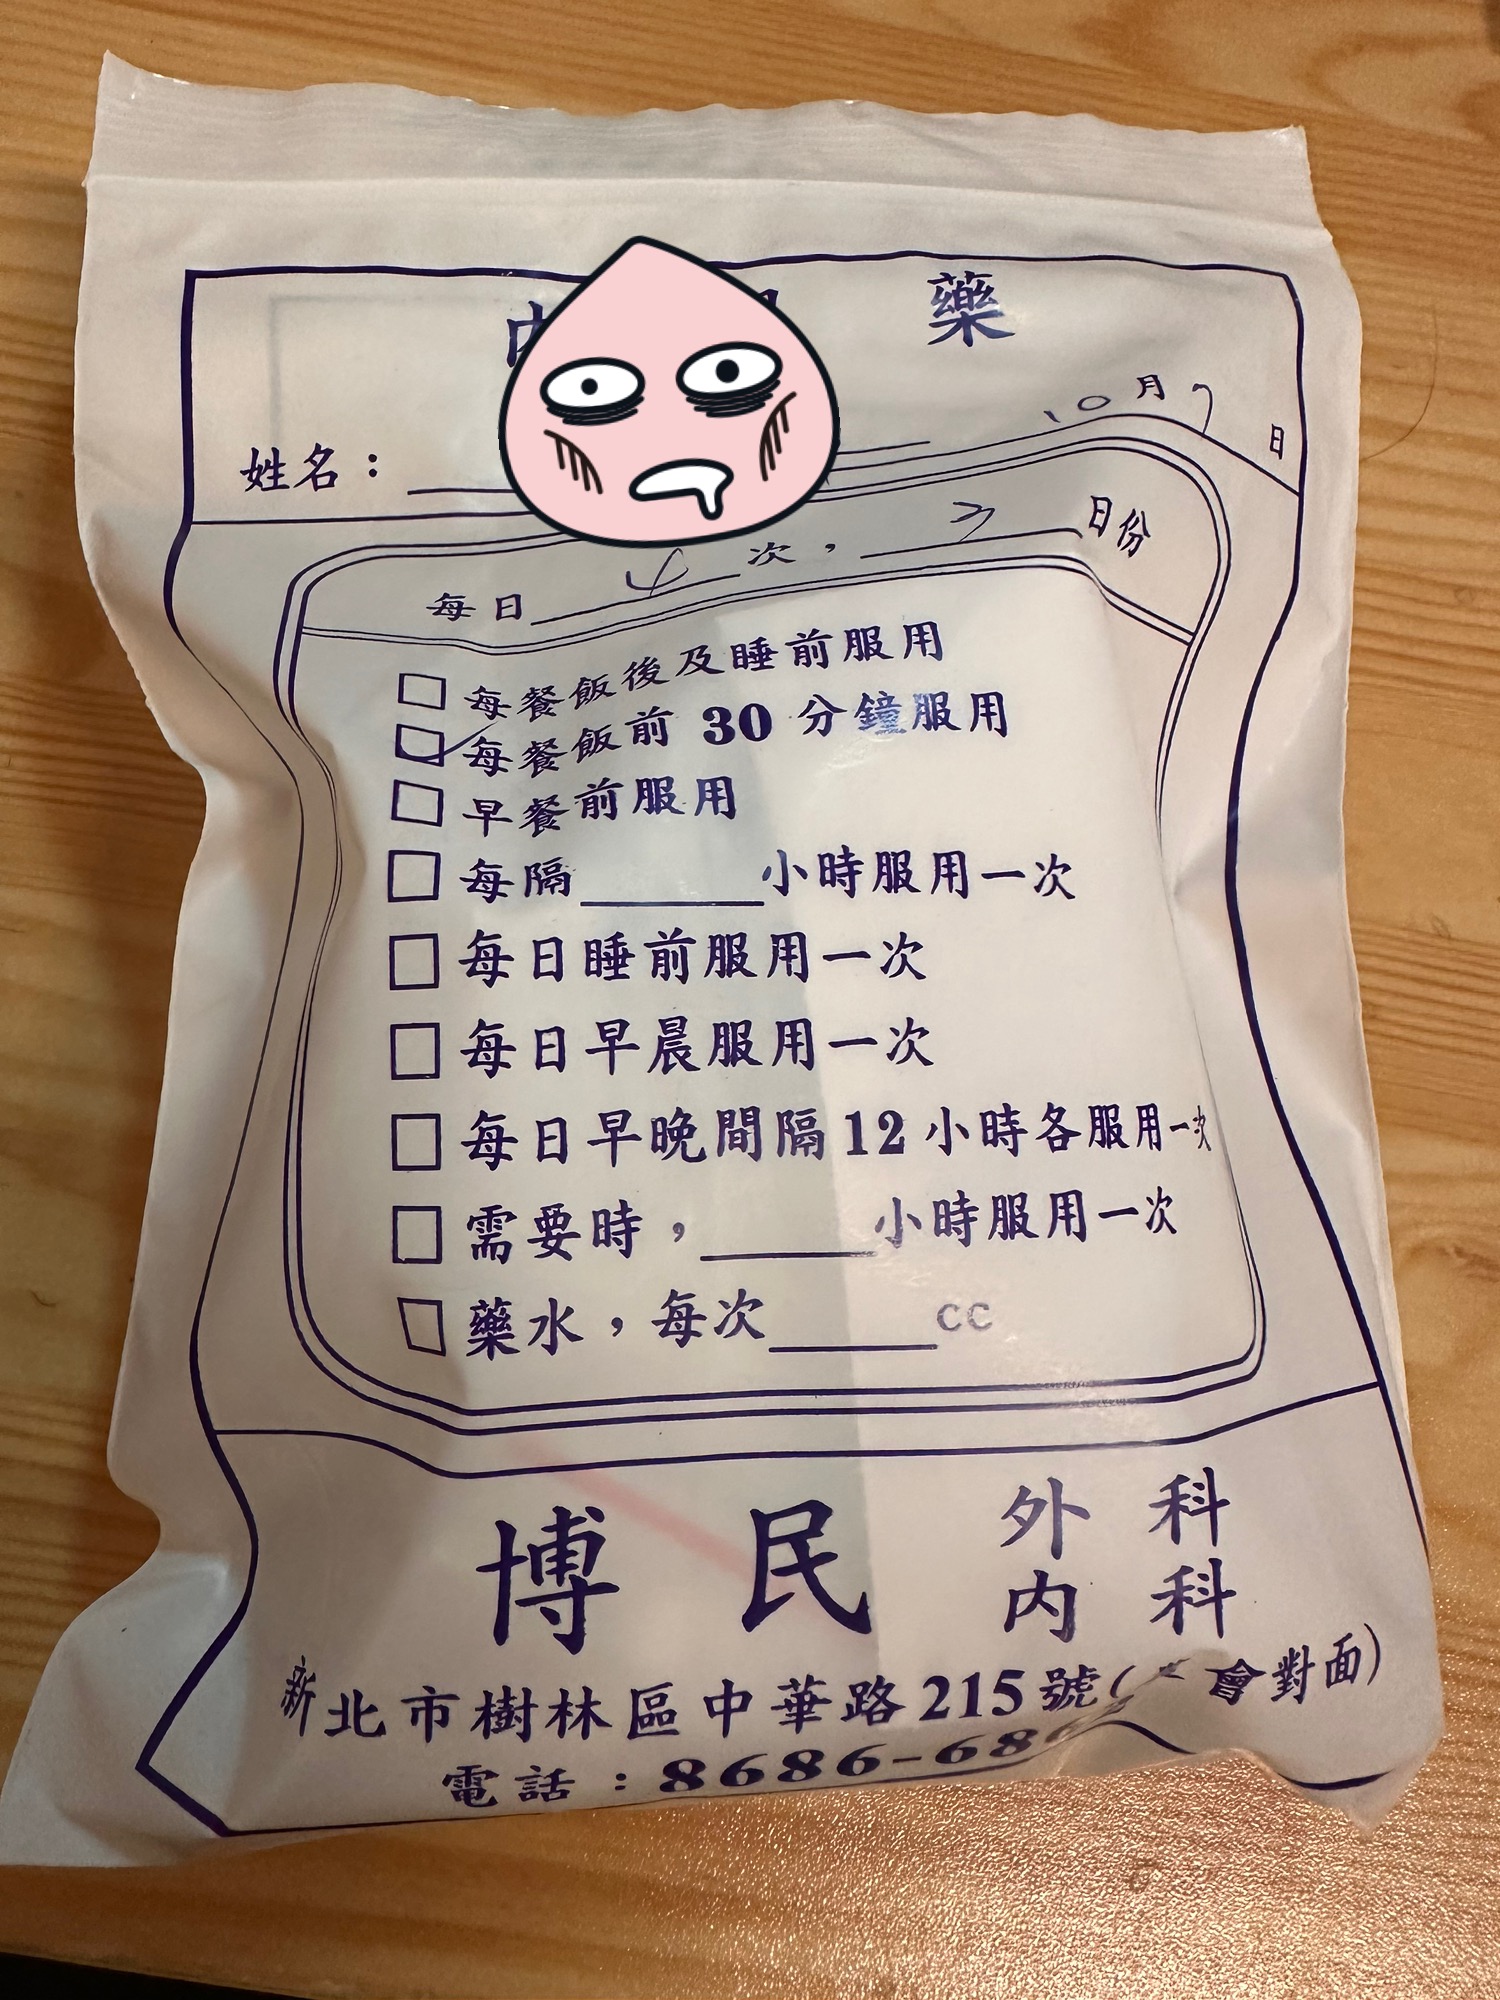 藥
10月7日
姓名：
每日 4 次， 3 日份
每餐飯後及睡前服用
每餐飯前 30 分鐘服用
早餐前服用
每隔______小時服用一次
每日睡前服用一次
每日早晨服用一次
每日早晚間隔 12 小時各服用一次
需要時，______小時服用一次
藥水，每次______cc
博民 外科
內科
新北市樹林區中華路215號( 會對面)
電話：8686-68